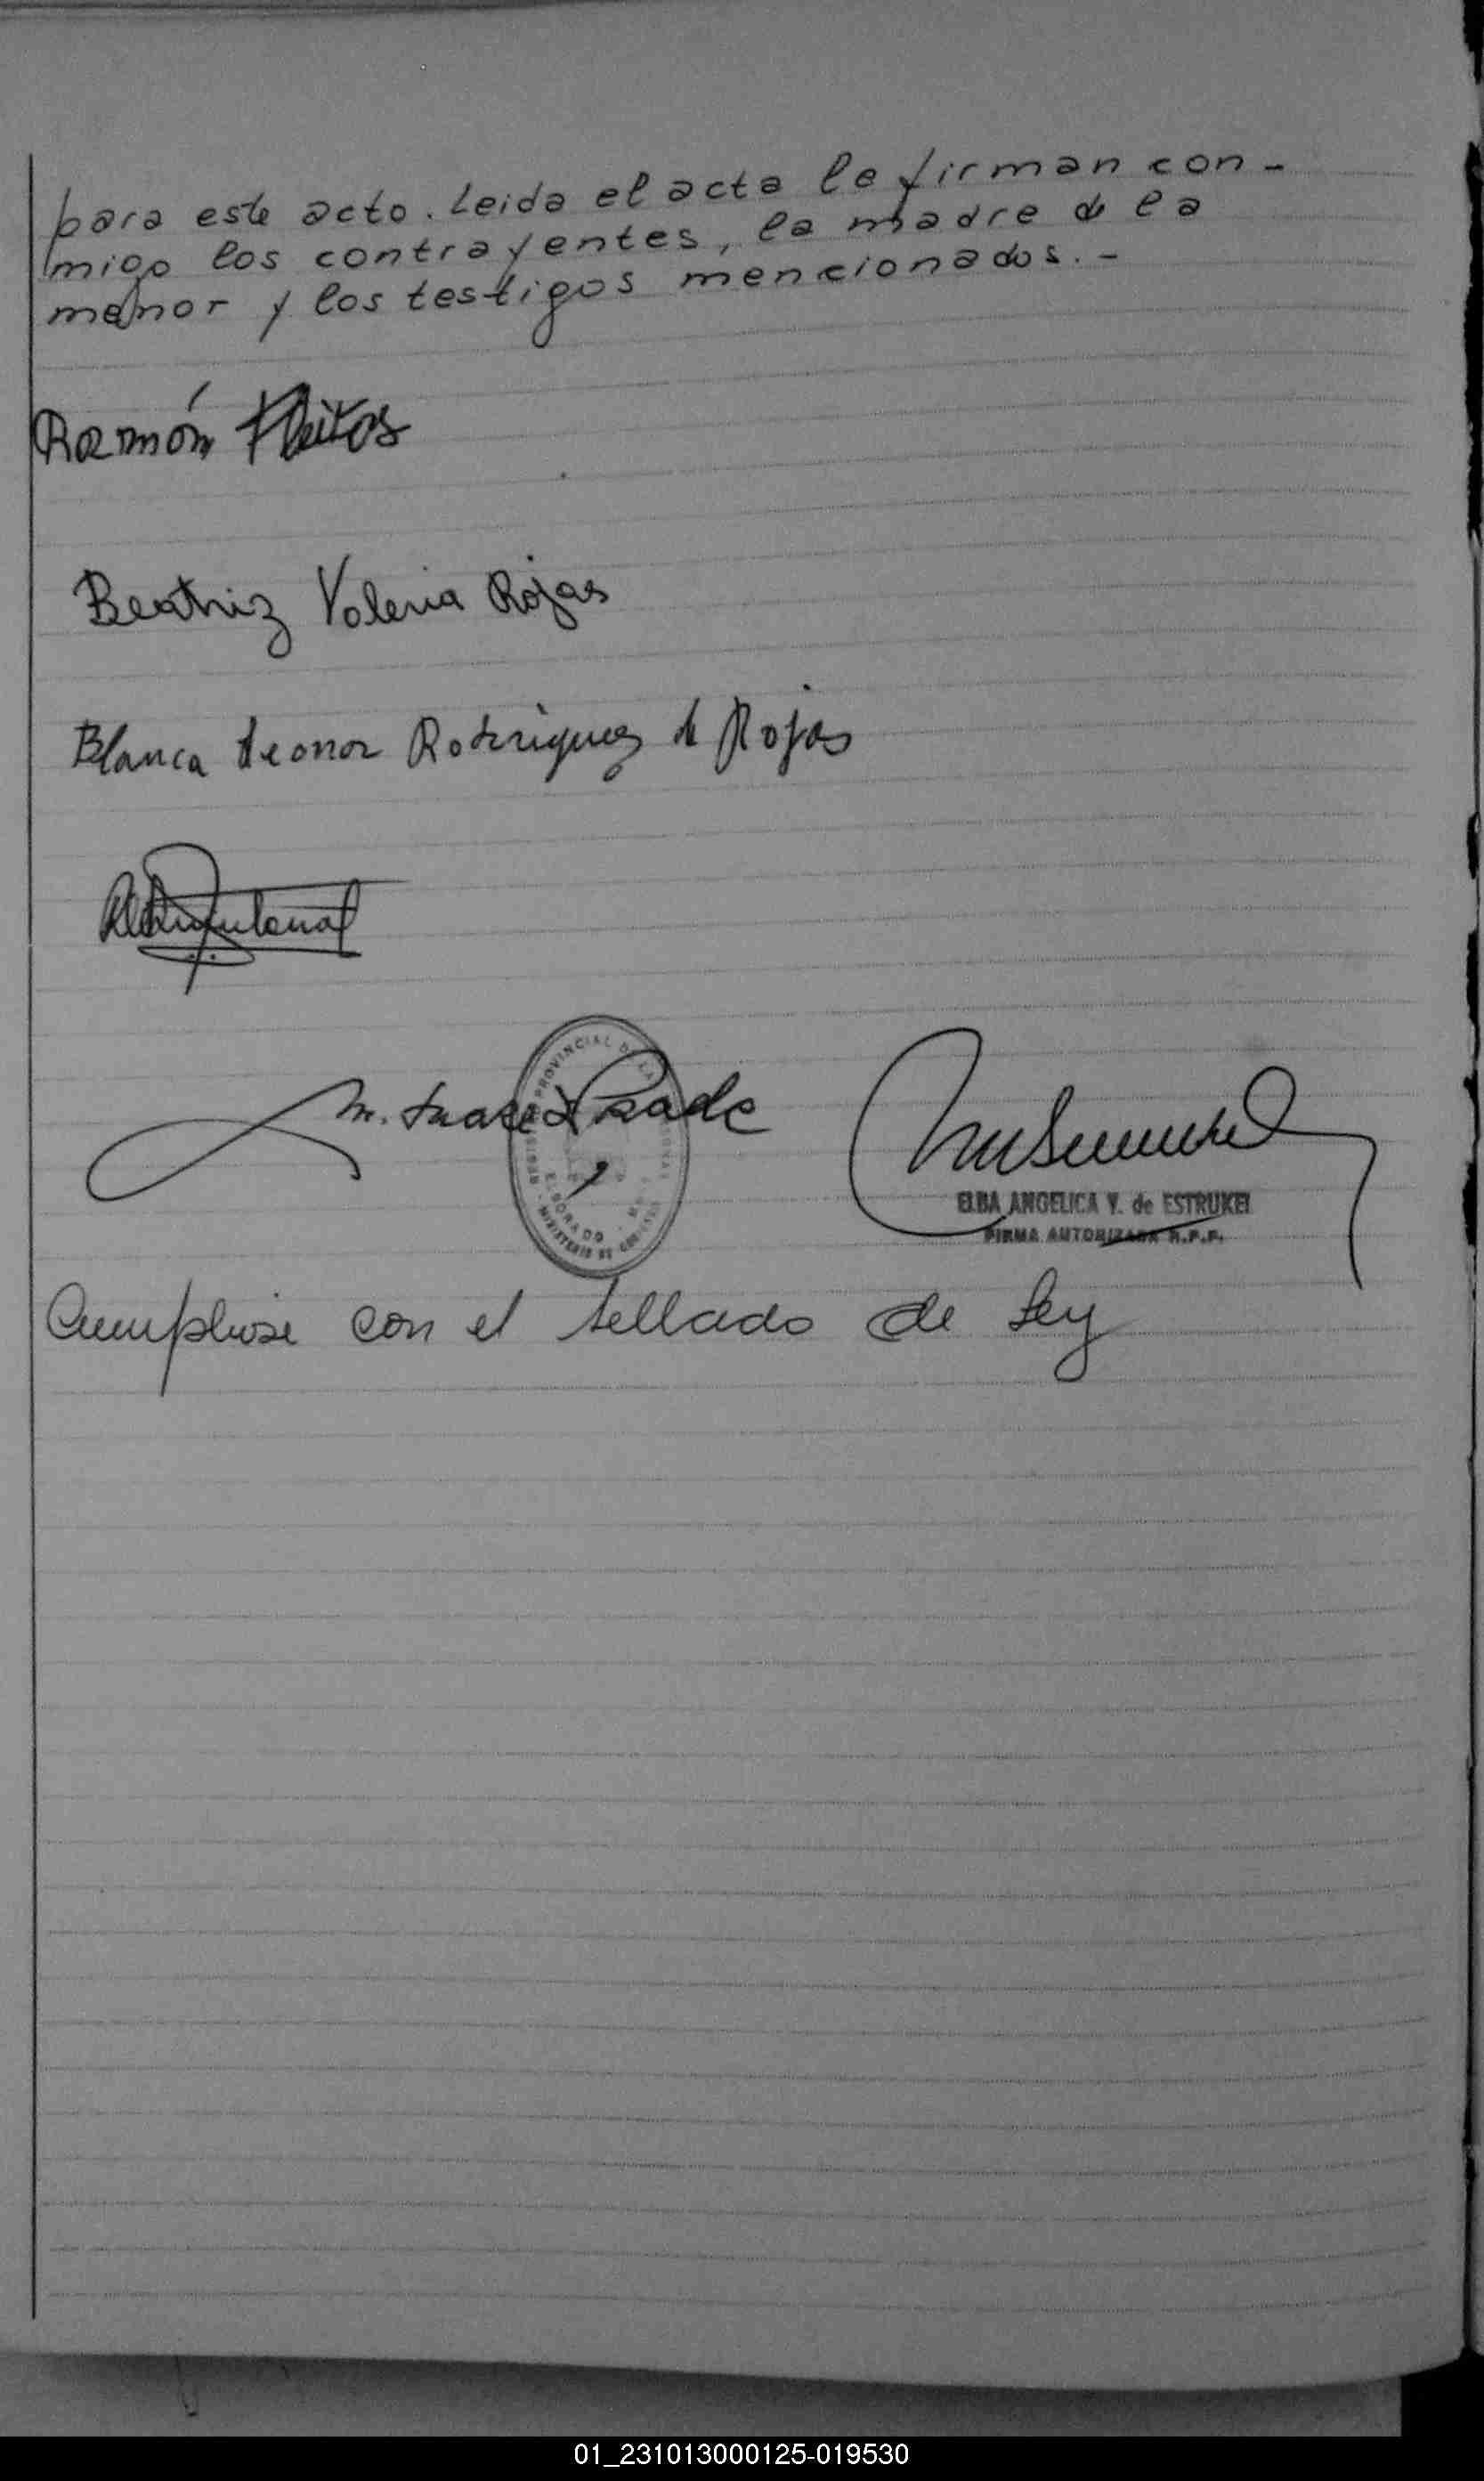 para este acto. Leida el acta la firman con-
migo los contrayentes, la madre de la
menor y los testigos mencionados.-
Ramón Fleitas
Beatriz Valeria Rojas
Blanca Leonor Rodriguez de Rojas
M. Suarez Prade
PROVINCIAL DE LA
ELDORADO
MINISTERIO DE
ELBA ANGELICA Y. de ESTRUKEL
FIRMA AUTORIZADA R.P.P.
Cumpliose con el sellado de Ley
01_231013000125-019530